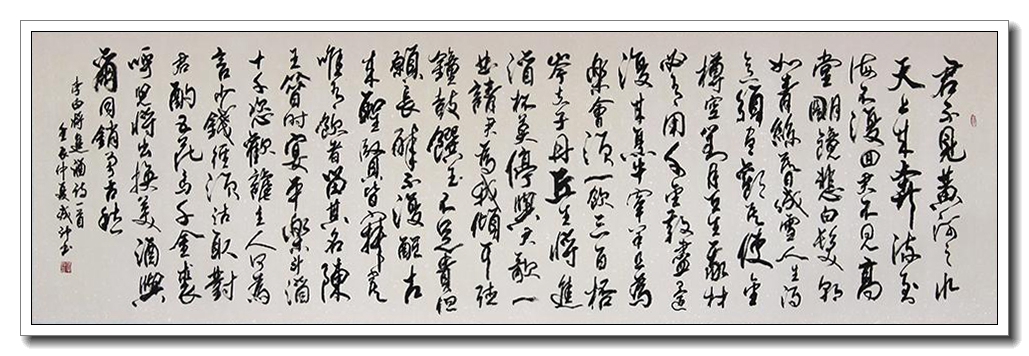 君不見黃河之水
天上來奔流到
海不復回君不見高
堂明鏡悲白髮朝
如青絲暮成雪人生得
意須盡歡莫使金
樽空對月天生我材
必有用千金散盡還
復來烹羊宰牛且為
樂會須一飲三百杯
岑夫子丹丘生將進
酒杯莫停與君歌一
曲請君為我傾耳聽
鐘鼓饌玉不足貴但
願長醉不復醒古
來聖賢皆寂寞
唯有飲者留其名陳
王昔時宴平樂斗酒
十千恣歡謔主人何為
言少錢徑須沽取對
君酌五花馬千金裘
呼兒將出換美酒與
爾同銷萬古愁
李白將進酒詩一首
仲夏